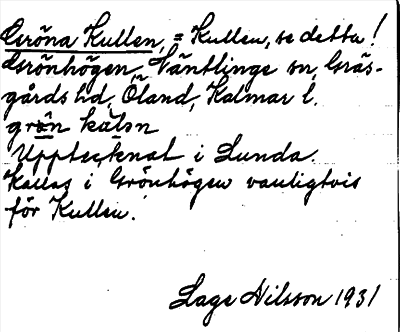 Gröna Kullen, = Kullen, se detta!
Grönhögen, Ventlinge sn, Gräs-
gårds hd, Öland, Kalmar l.
grön kälsn
Upptecknat i Lunda.
Kallas i Grönhögen vanligtvis
för Kullen.
Lage Nilsson 1931